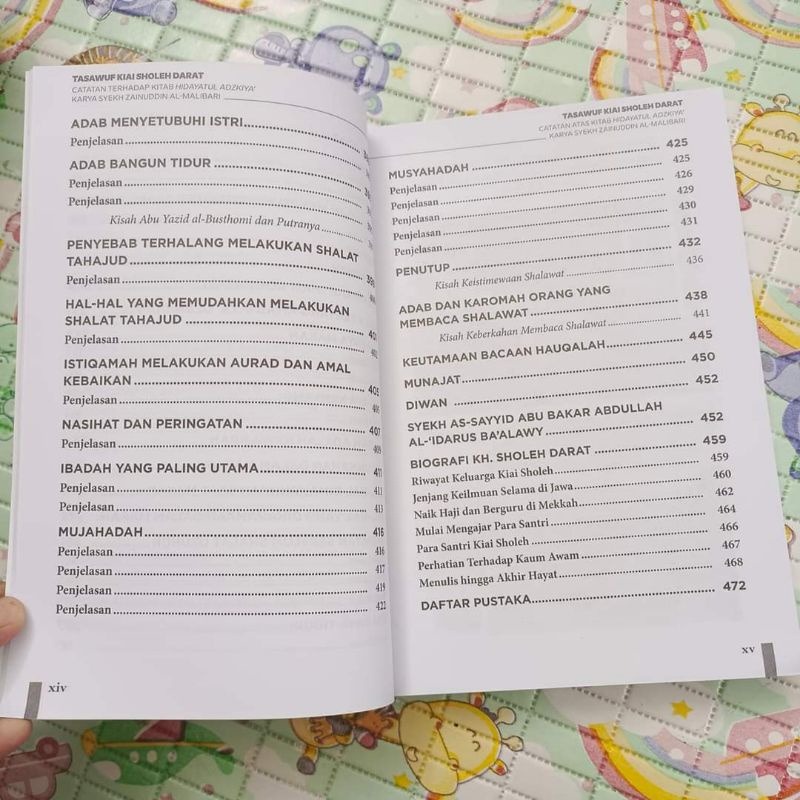 TASAWUF KIAI SHOLEH DARAT
CATATAN TERHADAP KITAB HIDAYATUL ADZKIYA'
KARYA SYEKH ZAINUDDIN AL-MALIBARI
ADAB MENYETUBUHI ISTRI
Penjelasan
ADAB BANGUN TIDUR
Penjelasan
Penjelasan
Kisah Abu Yazid al-Busthomi dan Putranya
PENYEBAB TERHALANG MELAKUKAN SHALAT
TAHAJUD
Penjelasan
HAL-HAL YANG MEMUDAHKAN MELAKUKAN
SHALAT TAHAJUD 401
Penjelasan 402
ISTIQAMAH MELAKUKAN AURAD DAN AMAL
KEBAIKAN 405
Penjelasan 406
NASIHAT DAN PERINGATAN 407
Penjelasan 409
IBADAH YANG PALING UTAMA 411
Penjelasan 411
Penjelasan 413
MUJAHADAH 416
Penjelasan 416
Penjelasan 417
Penjelasan 419
Penjelasan 422
xiv
TASAWUF KIAI SHOLEH DARAT
CATATAN ATAS KITAB HIDAYATUL ADZKIYA'
KARYA SYEKH ZAINUDDIN AL-MALIBARI
MUSYAHADAH 425
Penjelasan 425
Penjelasan 426
Penjelasan 429
Penjelasan 430
Penjelasan 431
PENUTUP 432
Kisah Keistimewaan Shalawat 436
ADAB DAN KAROMAH ORANG YANG
MEMBACA SHALAWAT 438
Kisah Keberkahan Membaca Shalawat 441
KEUTAMAAN BACAAN HAUQALAH 445
MUNAJAT 450
DIWAN 452
SYEKH AS-SAYYID ABU BAKAR ABDULLAH
AL-'IDARUS BA'ALAWY 452
BIOGRAFI KH. SHOLEH DARAT 459
Riwayat Keluarga Kiai Sholeh 459
Jenjang Keilmuan Selama di Jawa 460
Naik Haji dan Berguru di Mekkah 462
Mulai Mengajar Para Santri 464
Para Santri Kiai Sholeh 466
Perhatian Terhadap Kaum Awam 467
Menulis hingga Akhir Hayat 468
DAFTAR PUSTAKA 472
xv